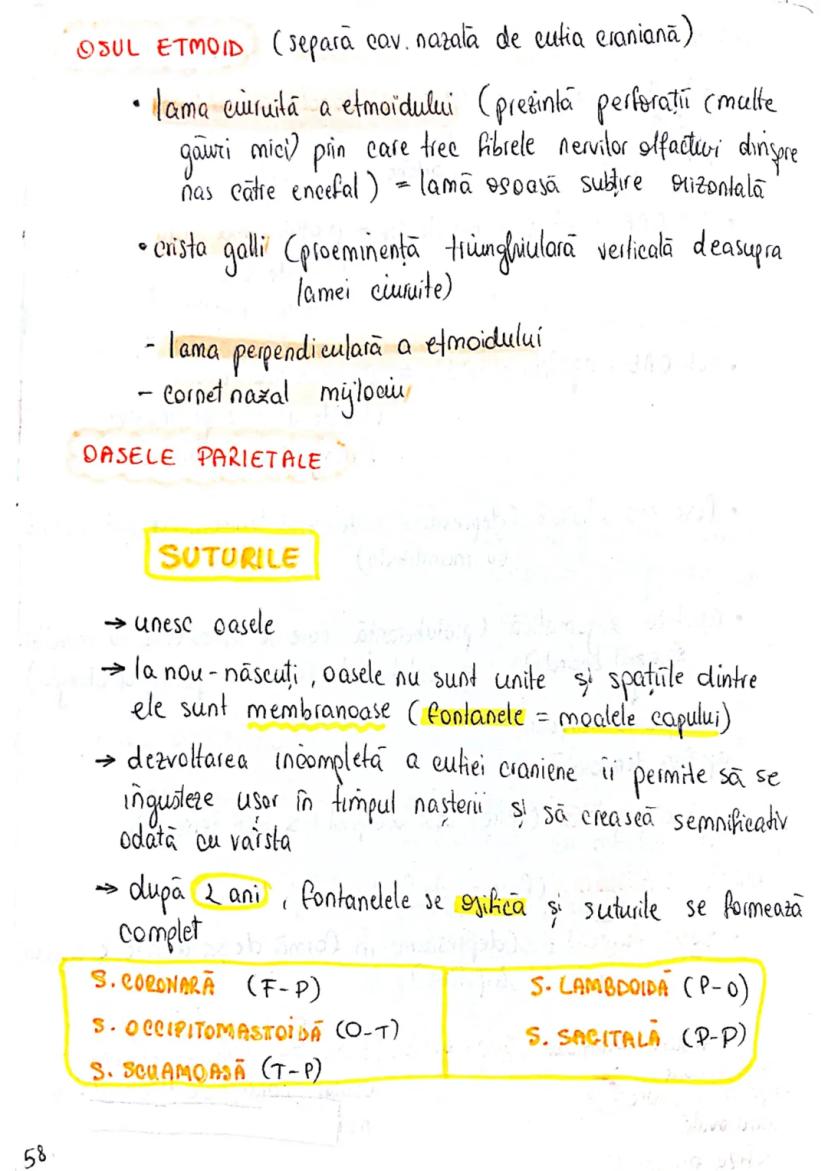 OSUL ETMOID (separă cav. nazală de cutia craniană)
• lama ciuruită a etmoidului (prezintă perforații (multe
găuri mici) prin care trec fibrele nervilor olfactivi dinspre
nas către encefal) = lamă osoasă subțire orizontală
• crista galli (proeminență triunghiulară verticală deasupra
lamei ciuruite)
- lama perpendiculară a etmoidului
- cornet nazal mijlociu
OASELE PARIETALE
SUTURILE
→ unesc oasele
→ la nou-născuți, oasele nu sunt unite și spațiile dintre
ele sunt membranoase (fontanele = moalele capului)
→ dezvoltarea incompletă a cutiei craniene îi permite să se
îngusteze ușor în timpul nașterii și să crească semnificativ
odată cu vârsta
→ după 2 ani, fontanelele se osifică și suturile se formează
complet
S. CORONARĂ (F-P)
S. OCCIPITOMASTOIDĂ (O-T)
S. SCUAMOASĂ (T-P)
S. LAMBDOIDĂ (P-O)
S. SAGITALĂ (P-P)
58